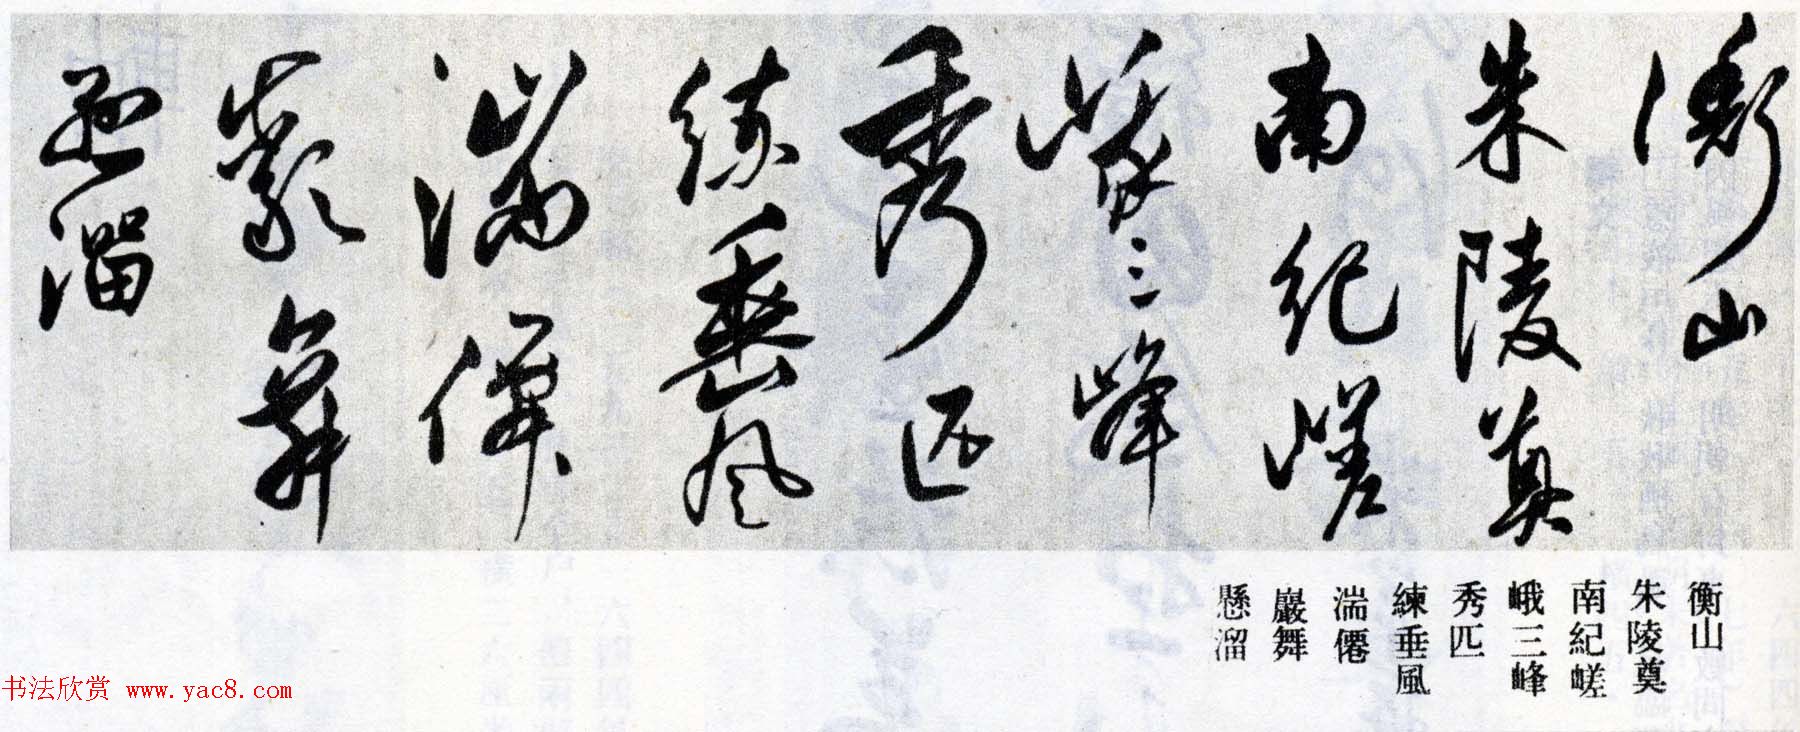 衡山
朱陵奠
南紀嵯
峨三峰
秀匹
練垂風
湍僊
巖舞
懸溜
衡山
朱陵奠
南紀嵯
峨三峰
秀匹
練垂風
湍僊
巖舞
懸溜
书法欣赏 www.yac8.com